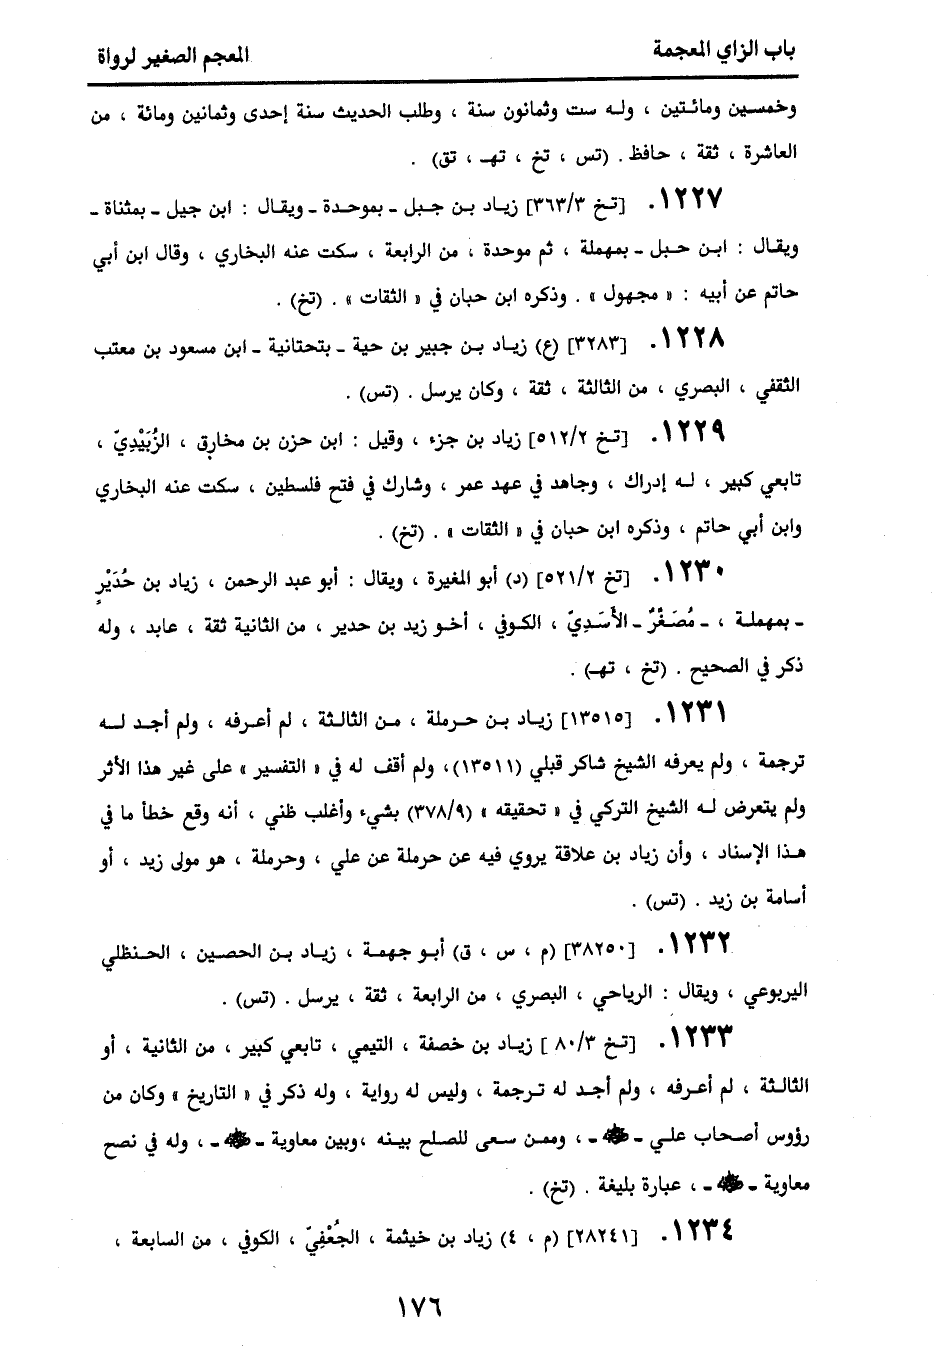 باب الزاي المعجمة
المعجم الصغير لرواة
وخمسين ومائتين ، وله ست وثمانون سنة ، وطلب الحديث سنة إحدى وثمانين ومائة ، من
العاشرة ، ثقة ، حافظ . (تس ، تخ ، تهـ ، تق) .
١٢٢٧. [تخ ٣٦٣/٣] زياد بن جبل ـ بموحدة ـ ويقال : ابن جيل ـ بمثناة ـ
ويقال : ابن حبل ـ بمهملة ، ثم موحدة ، من الرابعة ، سكت عنه البخاري ، وقال ابن أبي
حاتم عن أبيه : « مجهول » . وذكره ابن حبان في « الثقات » . (تخ) .
١٢٢٨. [٣٢٨٣] (ع) زياد بن جبير بن حية ـ بتحتانية ـ ابن مسعود بن معتب
الثقفي ، البصري ، من الثالثة ، ثقة ، وكان يرسل . (تس) .
١٢٢٩. [تخ ٥١٢/٢] زياد بن جزء ، وقيل : ابن حزن بن مخارق ، الزُبَيْدِيّ ،
تابعي كبير ، له إدراك ، وجاهد في عهد عمر ، وشارك في فتح فلسطين ، سكت عنه البخاري
وابن أبي حاتم ، وذكره ابن حبان في « الثقات » . (تخ) .
١٢٣٠. [تخ ٥٢١/٢] (د) أبو المغيرة ، ويقال : أبو عبد الرحمن ، زياد بن حُدَيْرٍ
ـ بمهملة ، ـ مُصَغْرٌ ـ الأَسَدِيّ ، الكوفي ، أخو زيد بن حدير ، من الثانية ثقة ، عابد ، وله
ذكر في الصحيح . (تخ ، تهـ) .
١٢٣١. [١٣٥١٥] زياد بن حرملة ، من الثالثة ، لم أعرفه ، ولم أجد له
ترجمة ، ولم يعرفه الشيخ شاكر قبلي (١٣٥١١)، ولم أقف له في « التفسير » على غير هذا الأثر
ولم يتعرض له الشيخ التركي في « تحقيقه » (٣٧٨/٩) بشيء وأغلب ظني ، أنه وقع خطأ ما في
هذا الإسناد ، وأن زياد بن علاقة يروي فيه عن حرملة عن علي ، وحرملة ، هو مولى زيد ، أو
أسامة بن زيد . (تس) .
١٢٣٢. [٣٨٢٥٠] (م ، س ، ق) أبو جهمة ، زياد بن الحصين ، الحنظلي
اليربوعي ، ويقال : الرياحي ، البصري ، من الرابعة ، ثقة ، يرسل . (تس) .
١٢٣٣. [تخ ٨٠/٣ ] زياد بن خصفة ، التيمي ، تابعي كبير ، من الثانية ، أو
الثالثة ، لم أعرفه ، ولم أجد له ترجمة ، وليس له رواية ، وله ذكر في « التاريخ » وكان من
رؤوس أصحاب علي ـ ـ ، وممن سعى للصلح بينه ،وبين معاوية ـ ـ ، وله في نصح
معاوية ـ ـ ، عبارة بليغة . (تخ) .
١٢٣٤. [٢٨٢٤١] (م ، ٤) زياد بن خيثمة ، الجُعْفِيّ ، الكوفي ، من السابعة ،
١٧٦